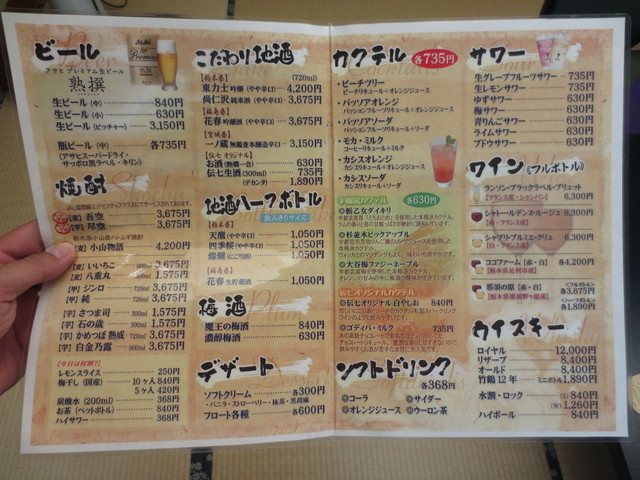 ビール
アサヒ プレミアム生ビール
熟撰
Asahi
生ビール（中） 840円
生ビール（小） 630円
生ビール（ピッチャー） 3,150円
瓶ビール（中） 各735円
（アサヒスーパードライ・
サッポロ黒ラベル・キリン）
焼酎
【麦】吾空 3,675円
【芋】尽空 3,675円
栃木県小山産ハトムギ焼酎
【麦】小山物語 4,200円
【麦】いいちこ 900ml 3,675円
【麦】八重丸 300ml 1,575円
【甲】ジンロ 3,675円
【甲】純 3,675円
【芋】さつま司 300ml 1,575円
【芋】石の蔵 300ml 1,575円
【芋】かめつぼ熟成 720ml 3,675円
【芋】白金乃露 900ml 3,675円
【今日は何割？】
レモンスライス 250円
梅干し（国産） 10ヶ入 840円
5ヶ入 420円
炭酸水（200ml） 368円
お茶（ペットボトル） 840円
ハイサワー 368円
こだわり地酒
【栃木県】 （720ml）
東力士 吟醸（やや辛口） 4,200円
尚仁沢 純米酒（やや辛口） 3,675円
【福島県】
花春 吟醸酒（やや辛口） 3,675円
【宮城県】
一ノ蔵 無鑑査本醸造辛口 3,150円
【伝七 オリジナル】
お酒（熱燗一合） 630円
伝七生酒（300ml） 735円
（デカンタ） 1,890円
地酒ハーフボトル
飲みきりサイズ
【栃木県】
天鷹（やや辛口） 1,050円
四季桜（やや辛口） 1,050円
燦爛（にごり酒） 1,050円
【福島県】
花春 生貯蔵酒 1,050円
梅酒
魔王の梅酒 840円
濃醇梅酒 630円
デザート
ソフトクリーム 各300円
・バニラ・ストロベリー・抹茶・黒胡麻
フロート各種 各600円
カクテル 各735円
・ピーチツリー
ピーチリキュール＋オレンジジュース
・パッソアオレンジ
パッションフルーツリキュール＋オレンジジュース
・パッソアソーダ
パッションフルーツリキュール＋ソーダ
・モカ・ミルク
コーヒーリキュール＋ミルク
・カシスオレンジ
カシスリキュール＋オレンジジュース
・カシスソーダ
カシスリキュール＋ソーダ
宇都宮カクテル 各630円
◎栃乙女ダイキリ
◎杉並木ビックアップル
◎大谷梅ファジーネーブル
伝七オリジナルカクテル
◎伝七オリジナル白やしお 840円
◎ゴディバ・ミルク 735円
ソフトドリンク
各368円
◎コーラ ◎サイダー
◎オレンジジュース ◎ウーロン茶
サワー
生グレープフルーツサワー 735円
生レモンサワー 735円
ゆずサワー 630円
梅サワー 630円
青りんごサワー 630円
ライムサワー 630円
ブドウサワー 630円
ワイン（フルボトル）
ランソン・ブラックラベル・ブリュット
【フランス産・シャンパン】 6,300円
シャトールデンヌ・ルージュ
【赤・フランス産】 6,300円
シャブリ・プルミエ・クリュ 6,300円
ココファーム【赤・白】 各4,200円
【栃木県足利市産】
那須の原【赤・白】 フルボトル
各3,675円
【栃木県那須野ヶ原産】 ハーフボトル
各1,890円
ウイスキー
ロイヤル 12,000円
リザーブ 8,400円
オールド 8,400円
竹鶴 12年 （ミニボトル） 1,890円
水割・ロック （S） 840円
（W） 1,260円
ハイボール 840円